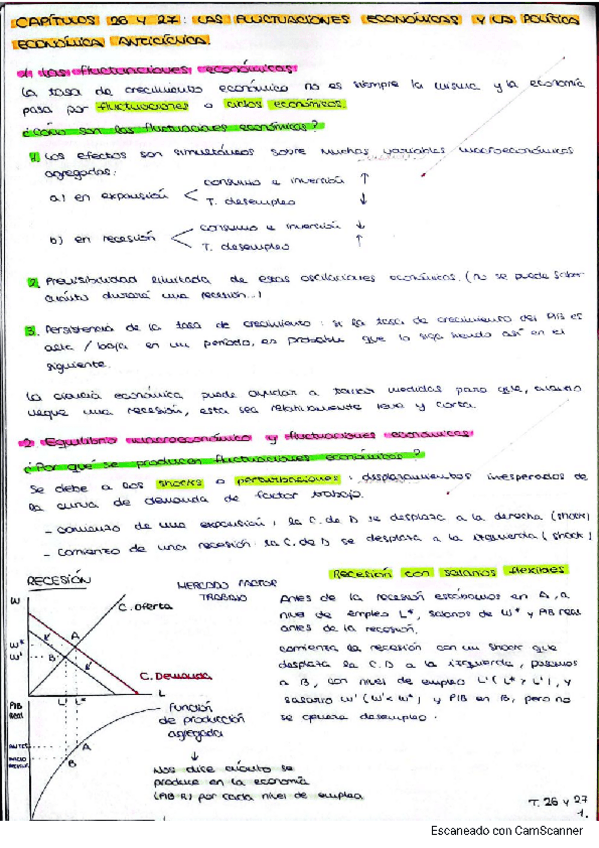 CAPÍTULOS 26 Y 27: LAS FLUCTUACIONES ECONÓMICAS Y LA POLÍTICA
ECONÓMICA ANTICÍCLICA.
1) Las fluctuaciones económicas
La tasa de crecimiento económico no es siempre la misma y la economía
pasa por fluctuaciones o ciclos económicos.
¿Cómo son las fluctuaciones económicas?
1. Los efectos son simultáneos sobre muchas variables macroeconómicas
agregadas:
a) en expansión < consumo e inversión ↑
T. desempleo ↓
b) en recesión < consumo e inversión ↓
T. desempleo ↑
2. Previsibilidad limitada de estas oscilaciones económicas. (no se puede saber
cuánto durará una recesión...)
3. Persistencia de la tasa de crecimiento: si la tasa de crecimiento del PIB es
alta / baja en un periodo, es probable que lo siga siendo así en el
siguiente.
La ciencia económica puede ayudar a tomar medidas para que, cuando
llegue una recesión, esta sea relativamente leve y corta.
2 Equilibrio macroeconómico y fluctuaciones económicas
¿Por qué se producen fluctuaciones económicas?
Se debe a los shocks o perturbaciones: desplazamientos inesperados de
la curva de demanda de factor trabajo.
- comienzo de una expansión: la C. de D se desplaza a la derecha (shock)
- comienzo de una recesión: la C. de D se desplaza a la izquierda (shock)
RECESIÓN
MERCADO FACTOR
TRABAJO
W
C. oferta
W*
W'
A
B
C. Demanda
L' L*
L
PIB
Real
Función
de producción
agregada
A
B
↓
Nos dice cuánto se
produce en la economía
(PIB R) por cada nivel de empleo
Recesión con salarios flexibles
Antes de la recesión estábamos en A, a
nivel de empleo L*, salarios de W* y PIB real
antes de la recesión.
Comienza la recesión con un shock que
desplaza la C.D a la izquierda, pasamos
a B, con nivel de empleo L' (L* > L'), y
salario W' (W' < W*) y PIB en B, pero no
se genera desempleo.
T. 26 y 27
1.
Escaneado con CamScanner